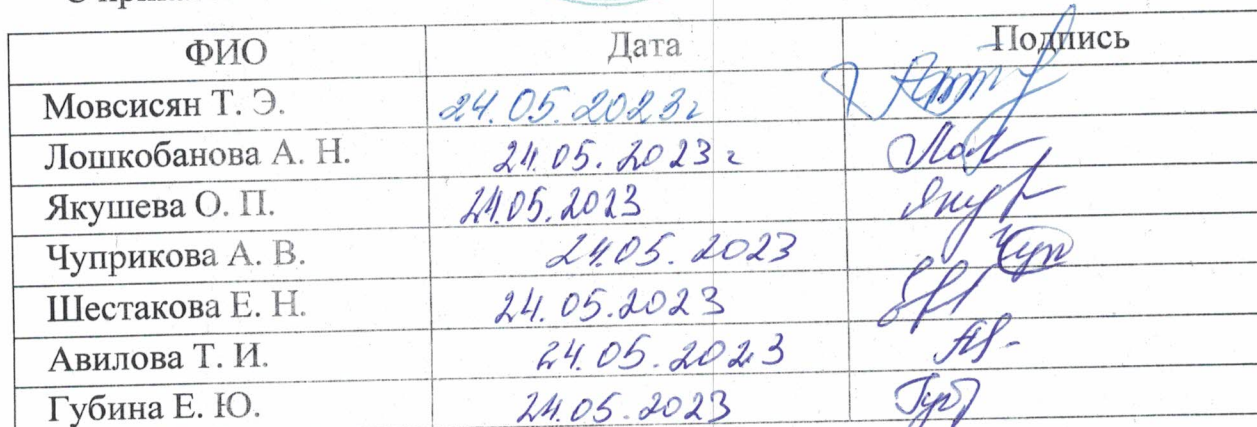 ФИО Дата Подпись
Мовсисян Т. Э. 24.05.2023г
Лошкобанова А. Н. 24.05.2023г
Якушева О. П. 24.05.2023
Чуприкова А. В. 24.05.2023
Шестакова Е. Н. 24.05.2023
Авилова Т. И. 24.05.2023
Губина Е. Ю. 24.05.2023